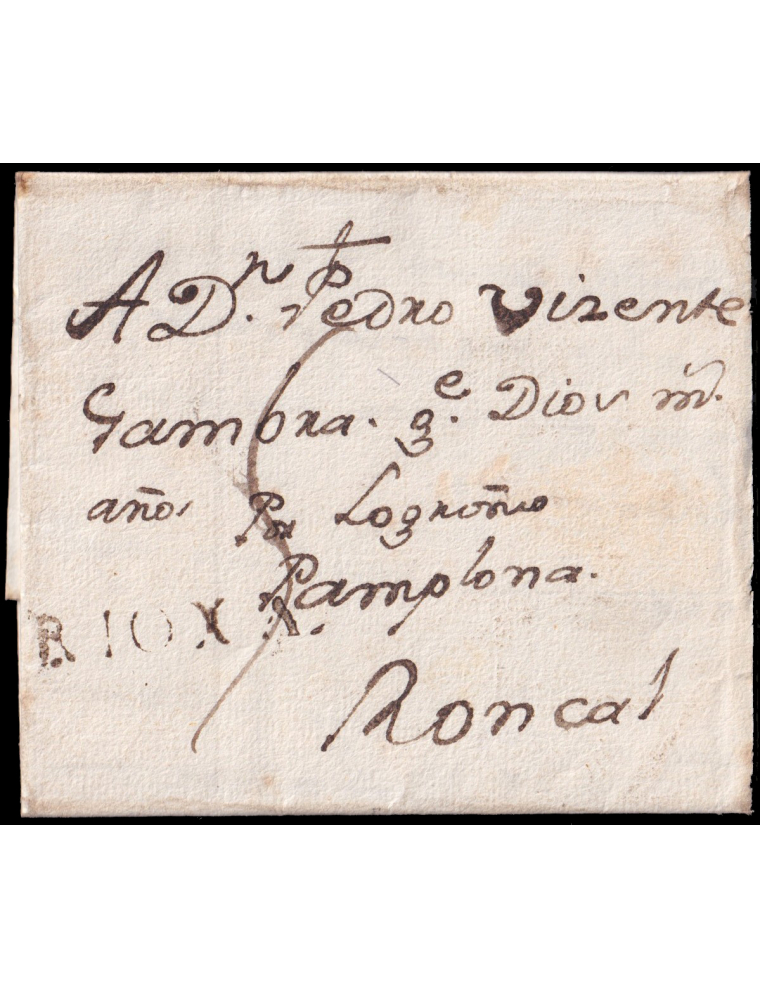 A Dn. Pedro Vizente
Gambra. ge. Dios ms.
años Por Logroño
Pamplona.
RIOXA.
Roncal